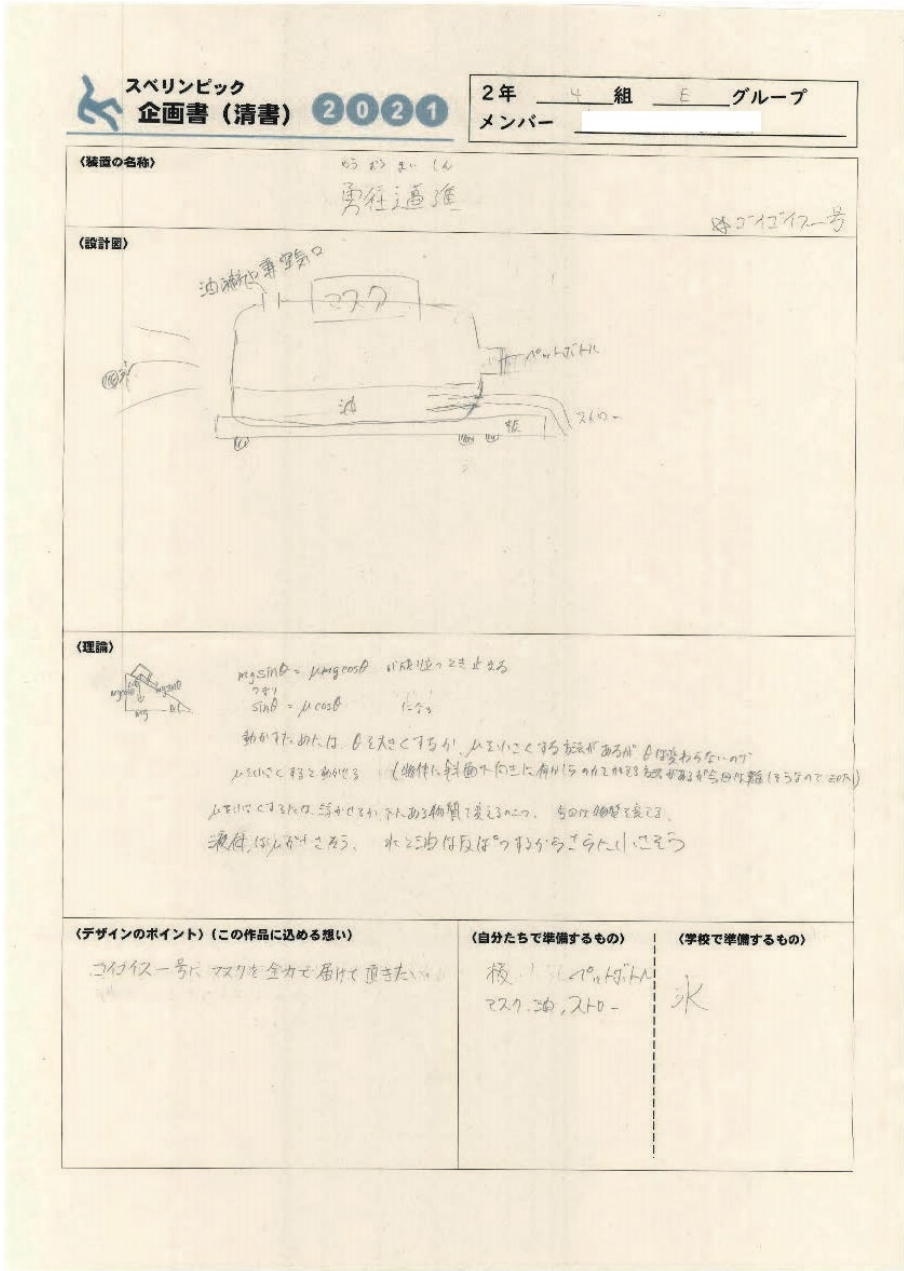 スベリンピック
企画書（清書） 2021
2年 4 組 E グループ
メンバー
〈装置の名称〉
ゆうおうまいしん
勇往邁進
ゴイゴイスー号
〈設計図〉
マスク
ペットボトル
油
ストロー
板
〈理論〉
mgsinθ = μmgcosθ が成り立つとき止まる
つまり
sinθ = μcosθ になる
mgsinθ
mg
動かすためには、θを大きくするか、μを小さくする方法があるが θは変わらないので
μを小さくすると動かせる (物体に斜面下向きに
μを小さくするには、浮かせるか、下にある物質を変えるの二つ、今回は物質を変える。
液体はμが小さそう、水と油は反ぱつするからさらに小さそう
〈デザインのポイント〉（この作品に込める想い）
ゴイゴイスー号に マスクを全力で届けて頂きたい。
〈自分たちで準備するもの〉
板 ペットボトル
マスク、油、ストロー
〈学校で準備するもの〉
氷